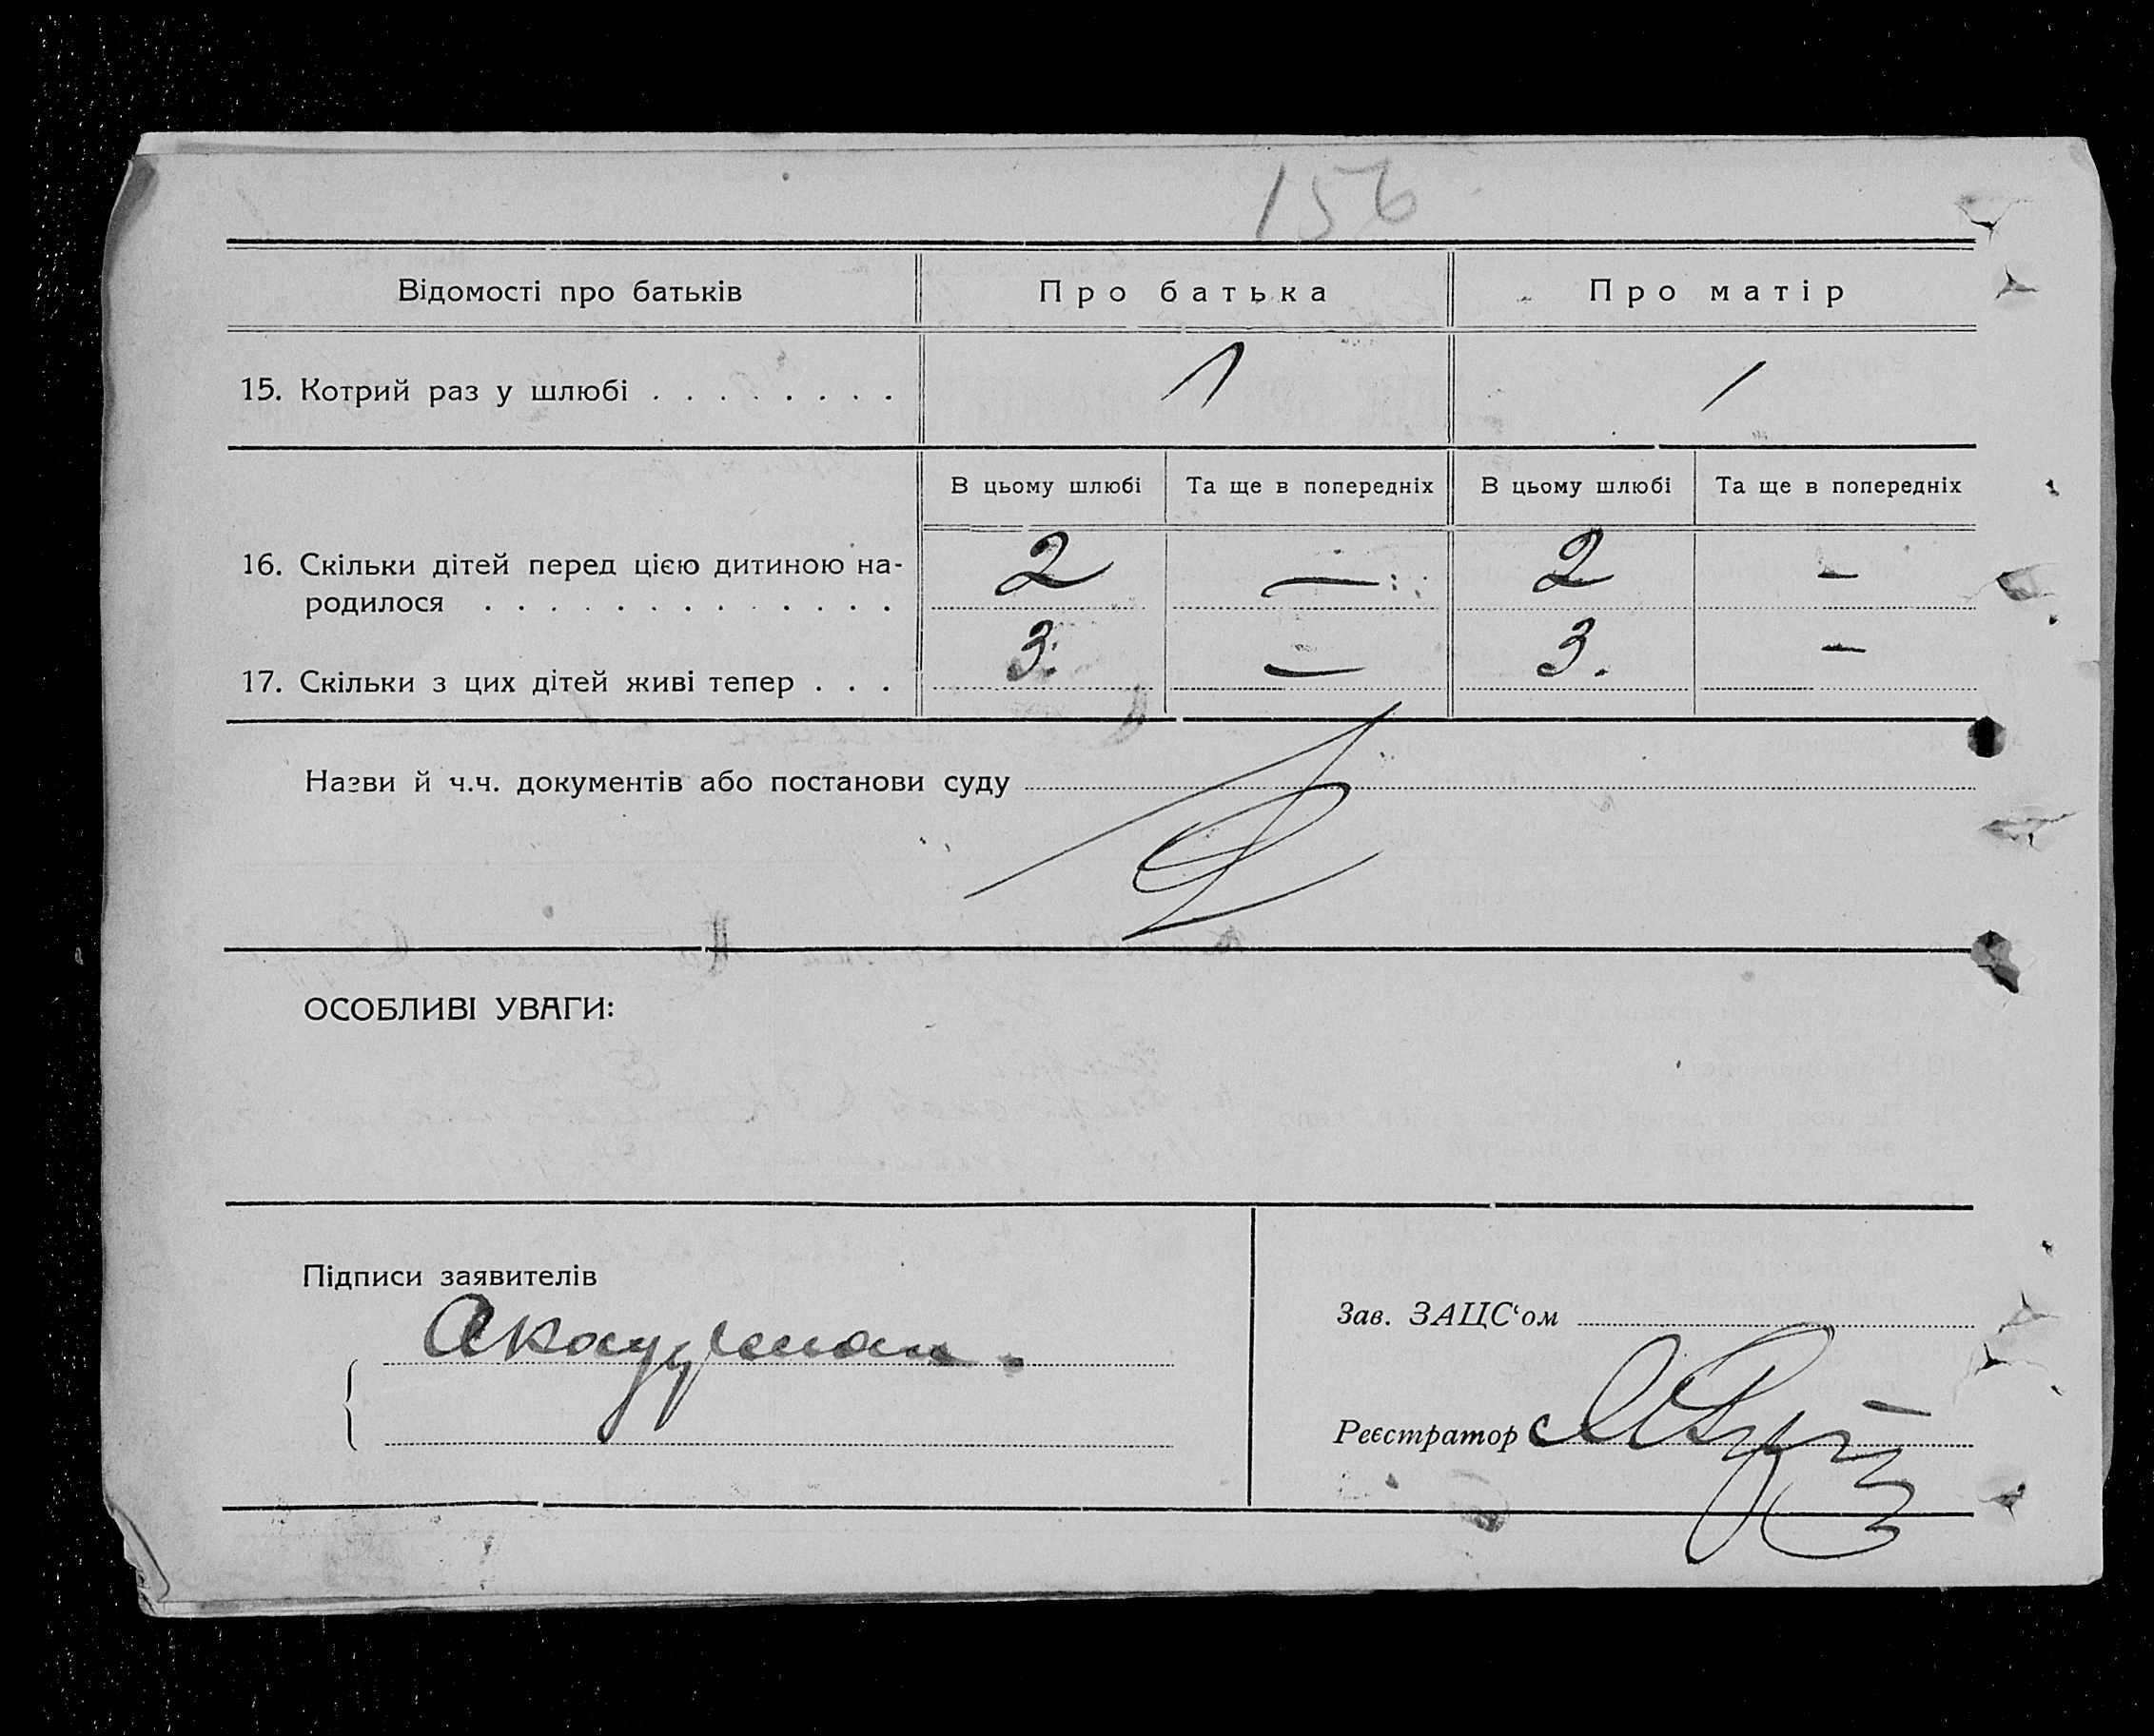 156
Відомості про батьків Про батька Про матір
15. Котрий раз у шлюбі . . . . . . . . 1 1
В цьому шлюбі Та ще в попередніх В цьому шлюбі Та ще в попередніх
16. Скільки дітей перед цією дитиною на-
родилося . . . . . . . . . . . . . 2 — 2 —
17. Скільки з цих дітей живі тепер . . . 3. — 3. —
Назви й ч.ч. документів або постанови суду
ОСОБЛИВІ УВАГИ:
Підписи заявителів
Зав. ЗАЦС‘ом
Реєстратор